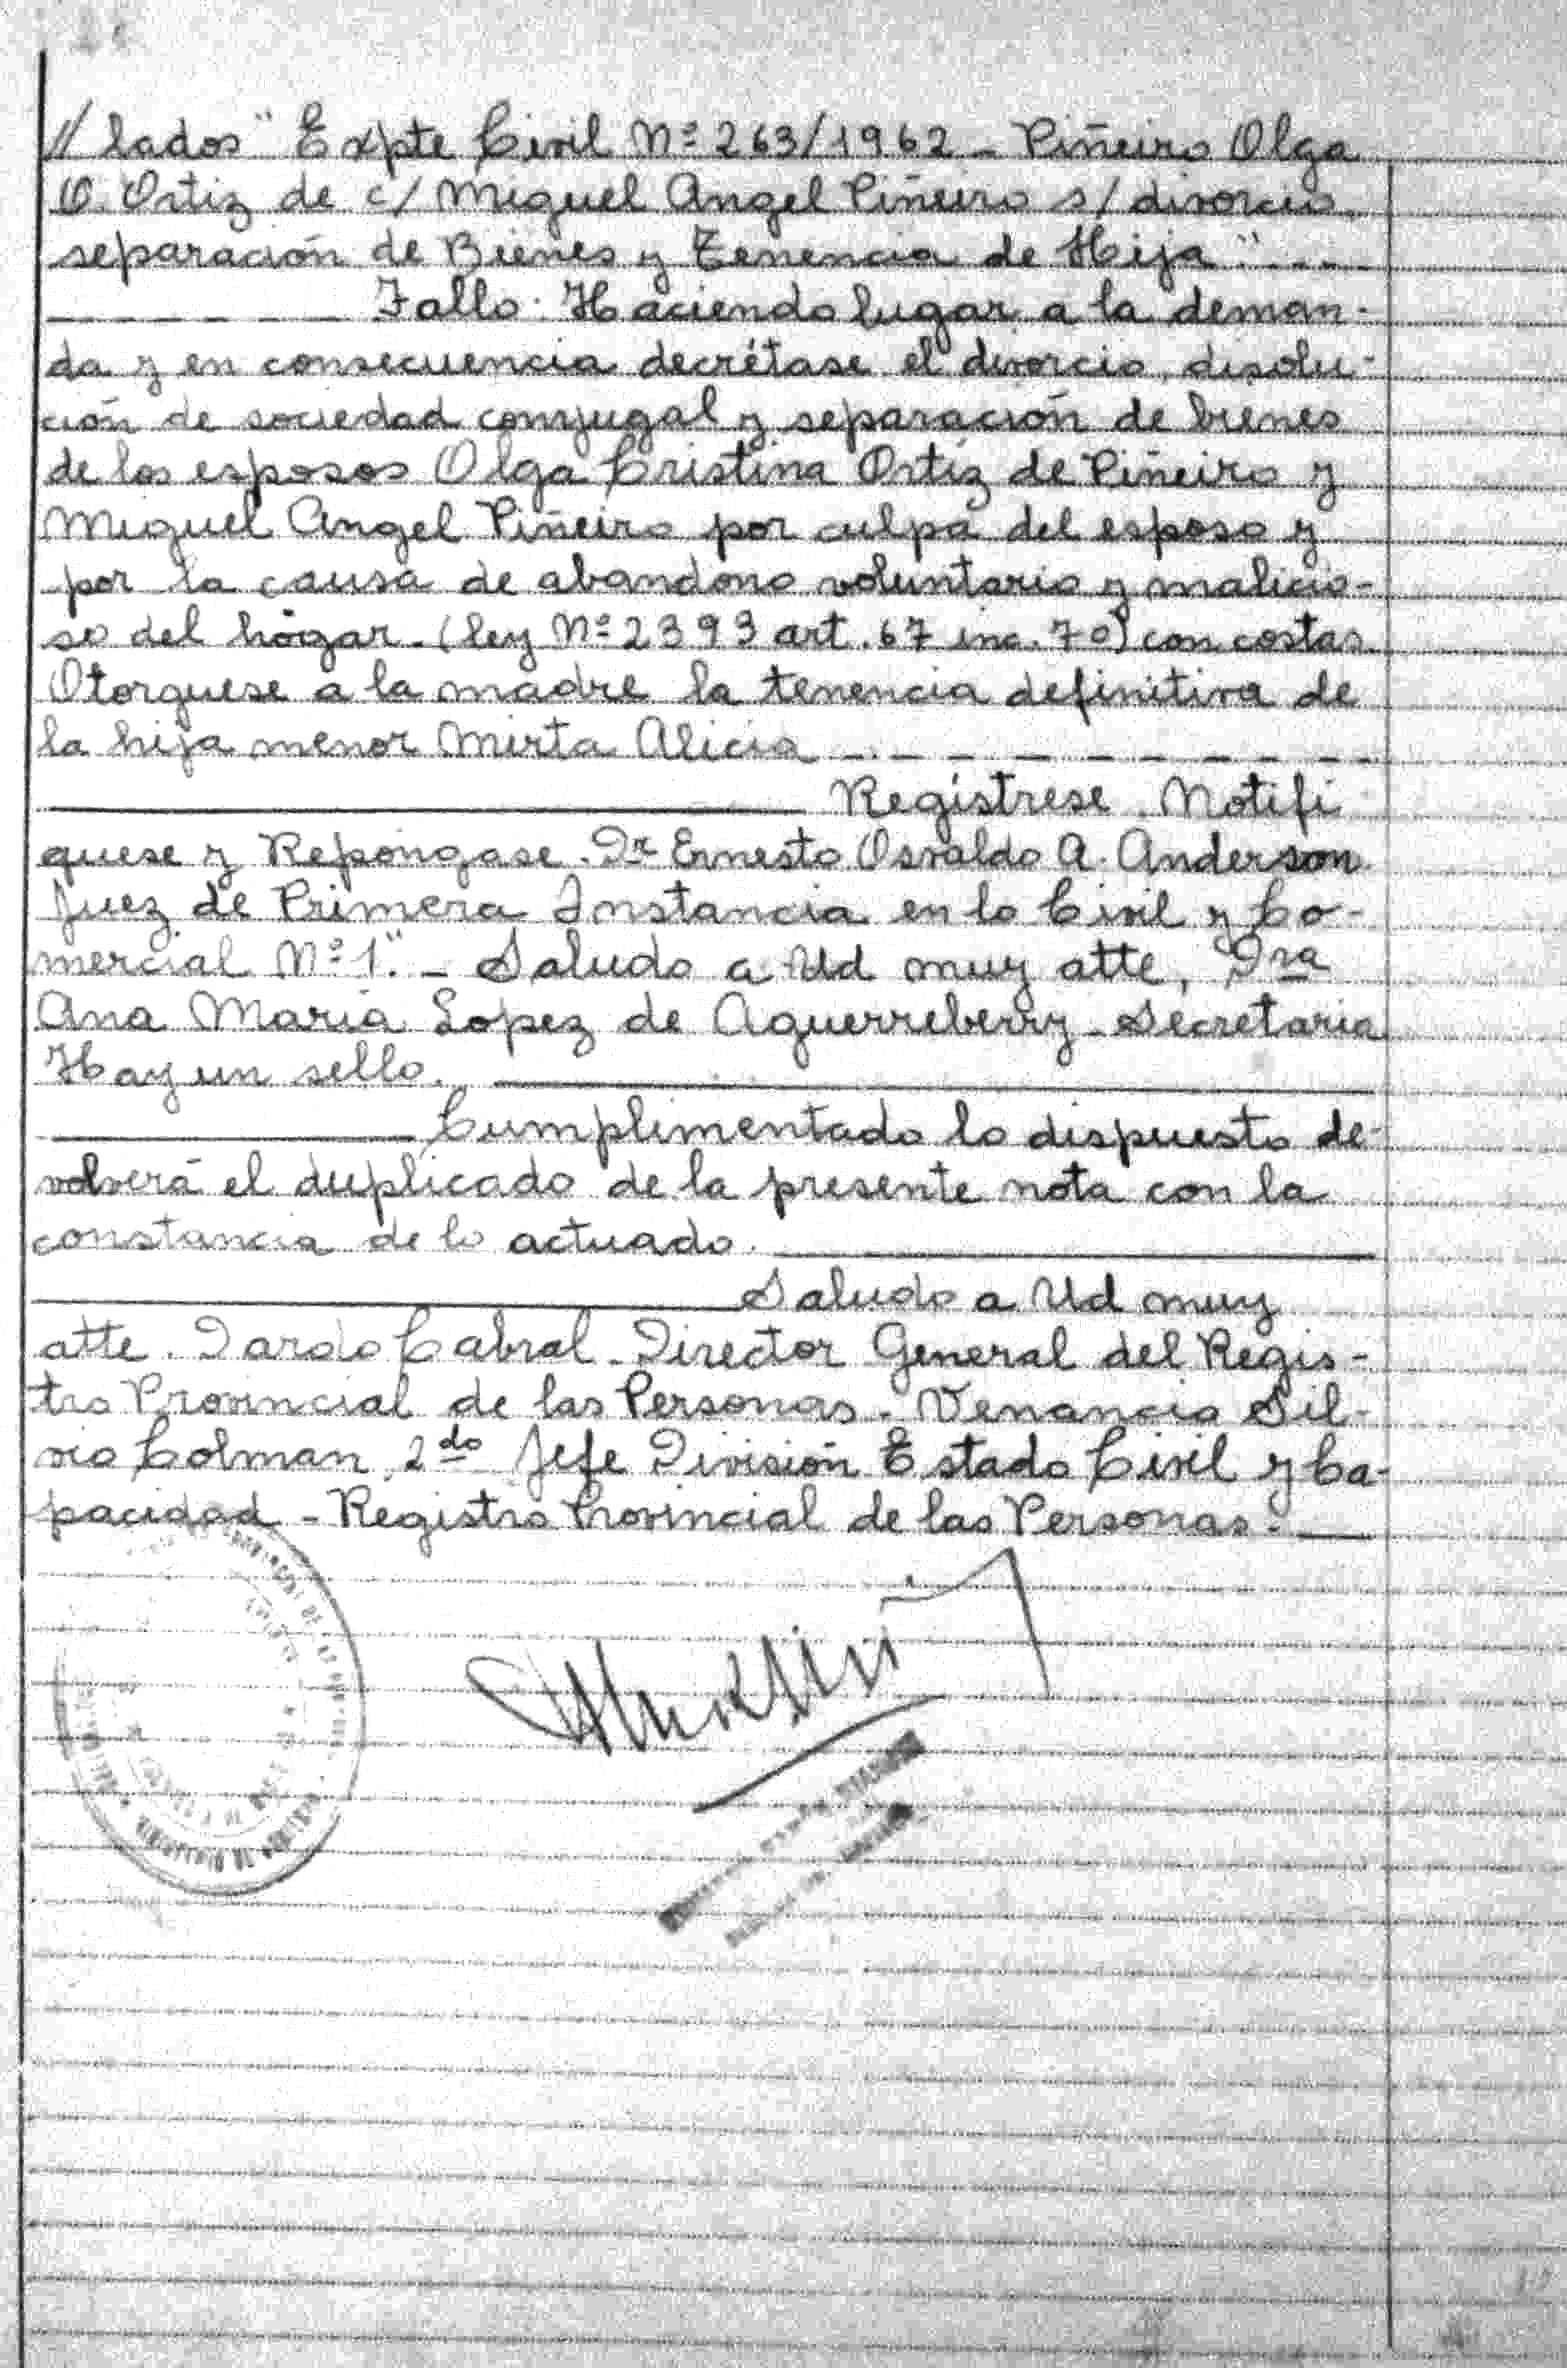 // lados" Expte Civil Nº 263/1962 - Piñeiro Olga
O. Ortiz de c/ Miguel Angel Piñeiro s/ divorcio,
separación de Bienes y Tenencia de Hija" - - -
- - - - - - Fallo: Haciendo lugar a la deman-
da y en consecuencia decrétase el divorcio, disolu-
ción de sociedad conyugal y separación de bienes
de los esposos Olga Cristina Ortíz de Piñeiro y
Miguel Angel Piñeiro por culpa del esposo y
por la causa de abandono voluntario y malicio-
so del hogar. (ley Nº 2393 art. 67 inc. 7º) con costas.
Otorguese a la madre la tenencia definitiva de
la hija menor Mirta Alicia - - - - - - - - -
Regístrese, Notifi
quese y Repóngase. Dr Ernesto Osvaldo A. Anderson
Juez de Primera Instancia en lo Civil y Co-
mercial Nº 1". - Saludo a Ud muy atte, Dra
Ana María Lopez de Aguerreberry - Secretaria
Hay un sello.
Cumplimentado lo dispuesto de-
volverá el duplicado de la presente nota con la
constancia de lo actuado.
Saludo a Ud muy
atte. Dardo Cabral - Director General del Regis-
tro Provincial de las Personas. Venancio Sil-
vio Colman, 2do Jefe División Estado Civil y Ca-
pacidad - Registro Provincial de las Personas. -